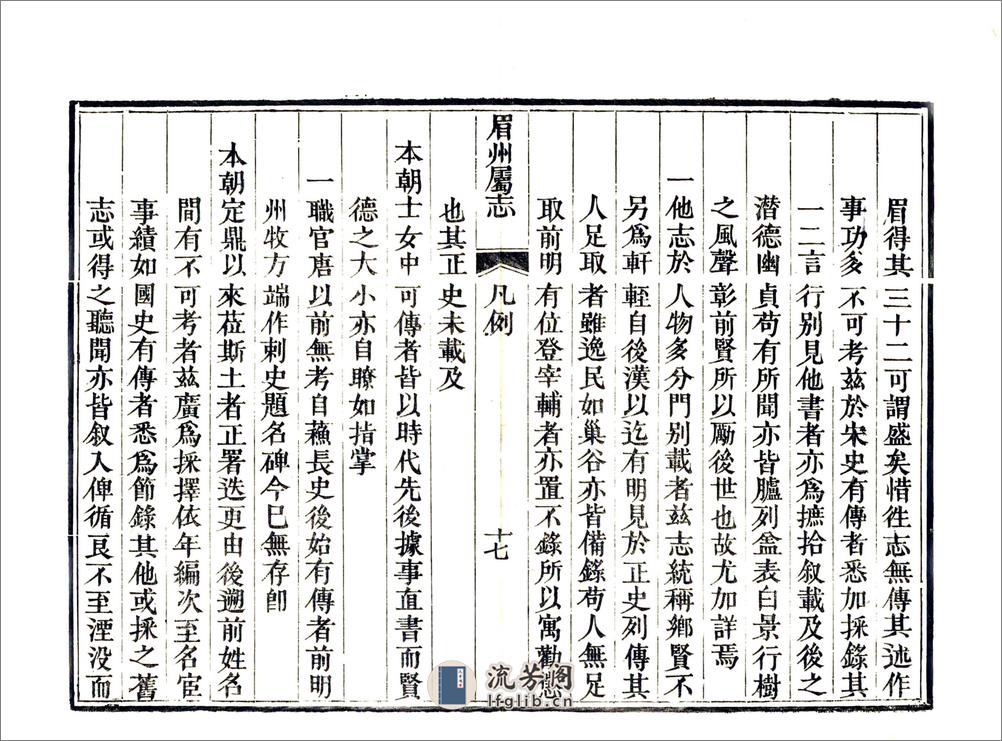 眉得其三十二可謂盛矣惜徃志無傳其述作
事功多不可考兹於宋史有傳者悉加採錄其
一二言行别見他書者亦爲摭拾叙載及後之
潜德幽貞苟有所聞亦皆臚列盖表白景行樹
之風聲彰前賢所以勵後世也故尤加詳焉
一他志於人物多分門别載者兹志統稱鄉賢不
另爲軒輊自後漢以迄有明見於正史列傳其
人足取者雖逸民如巢谷亦皆備錄苟人無足
取前明有位登宰輔者亦置不錄所以寓勸懲
眉州屬志
凡例
十七
也其正史未載及
本朝士女中可傳者皆以時代先後據事直書而賢
德之大小亦自瞭如指掌
一職官唐以前無考自蘓長史後始有傳者前明
州牧方端作刺史題名碑今已無存卽
本朝定鼎以來莅斯土者正署迭更由後遡前姓名
間有不可考者兹廣爲採擇依年編次至名宦
事績如國史有傳者悉爲節錄其他或採之舊
志或得之聽聞亦皆叙入俾循良不至湮没而
流芳阁
lfglib.cn